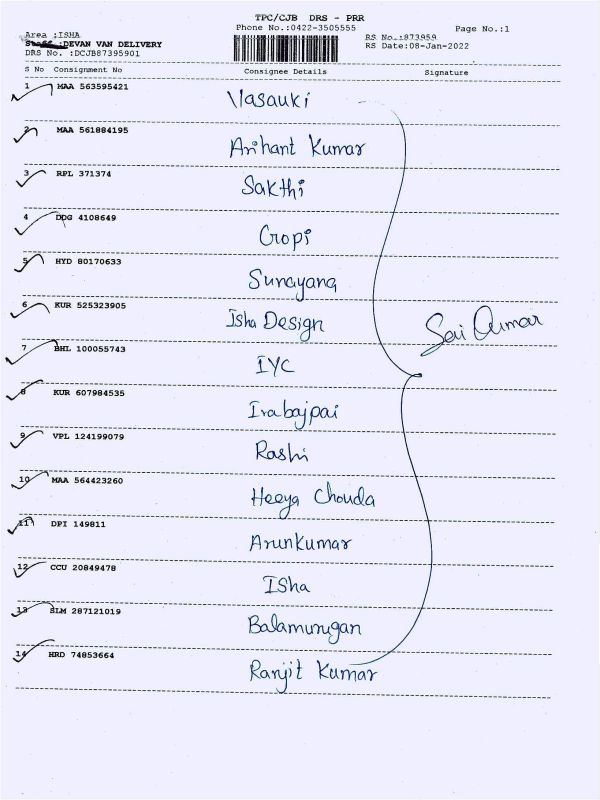 TPC/CJB DRS - PRR
Phone No.:0422-3505555 Page No.:1
Area :ISHA RS No.:873959
Staff :DEVAN VAN DELIVERY RS Date:08-Jan-2022
DRS No. :DCJB87395901
S No Consignment No Consignee Details Signature
1 MAA 563595421 Vasauki
2 MAA 561884195 Arihant Kumar
3 RPL 371374 Sakthi
4 DDG 4108649 Gopi
5 HYD 80170633 Sunayang
6 KUR 525323905 Isha Design
Sai Kumar
7 BHL 100055743 IYC
8 KUR 607984535 Irabajpai
9 VPL 124199079 Rashi
10 MAA 564423260 Heeya Chouda
11 DPI 149811 Arunkumar
12 CCU 20849478 ISha
13 SLM 287121019 Balamurugan
14 HRD 74853664 Ranjit Kumar